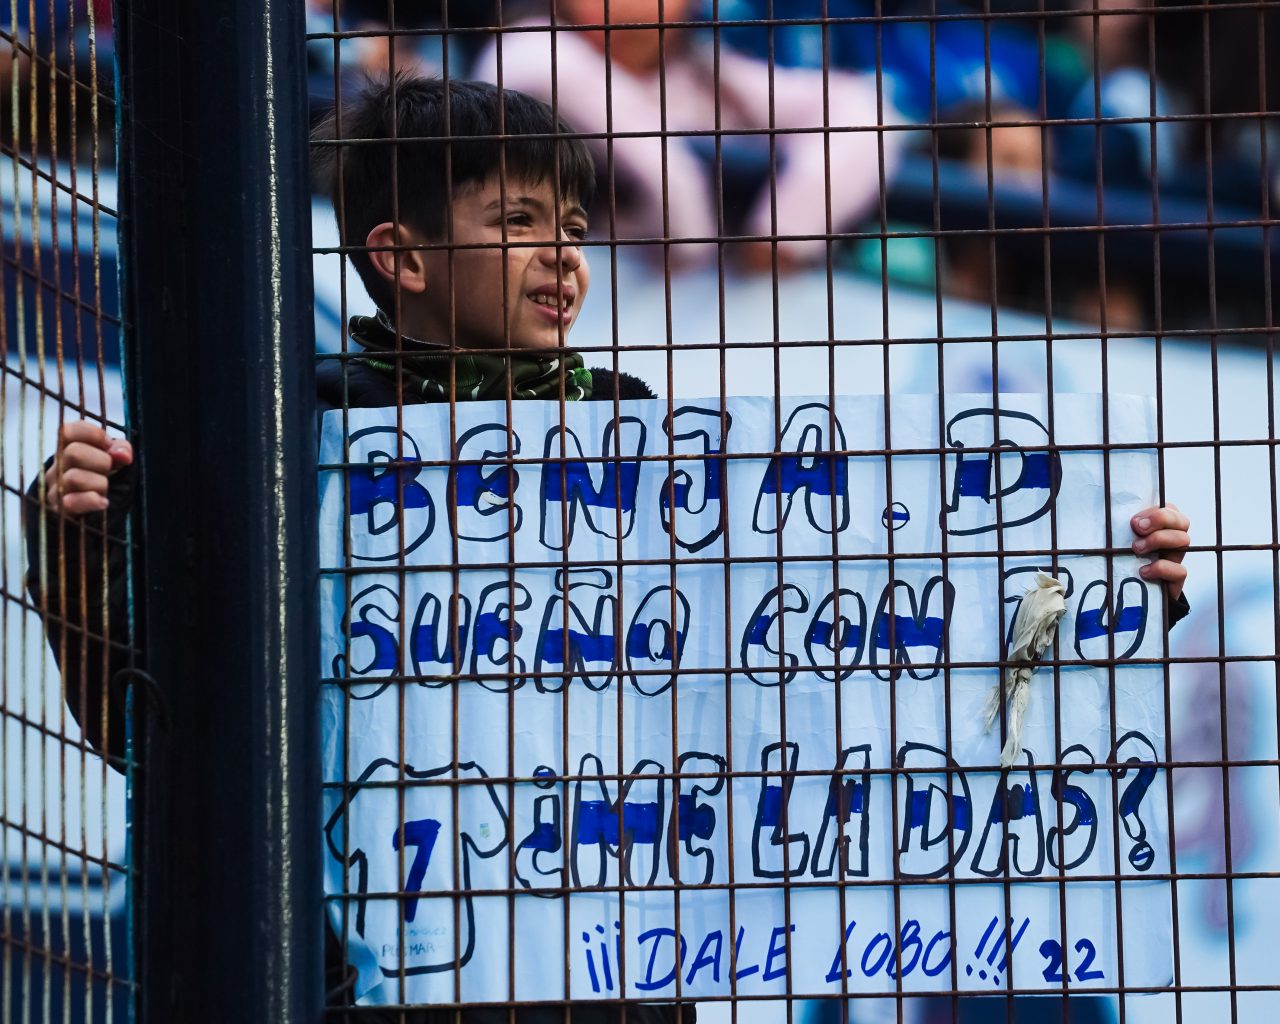 BENJA.D
SUEÑO CON TU
7
¿ME LADAS?
¡¡¡DALE LOBO!!! 22